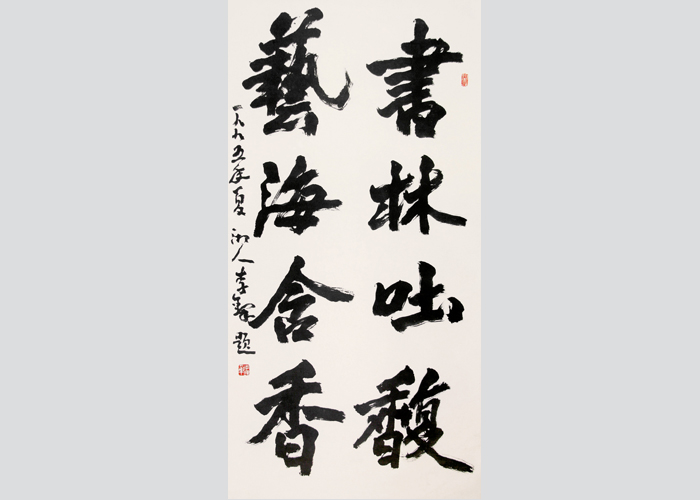 書林吐馥
藝海含香
一九九五年夏 湘人李鐸題